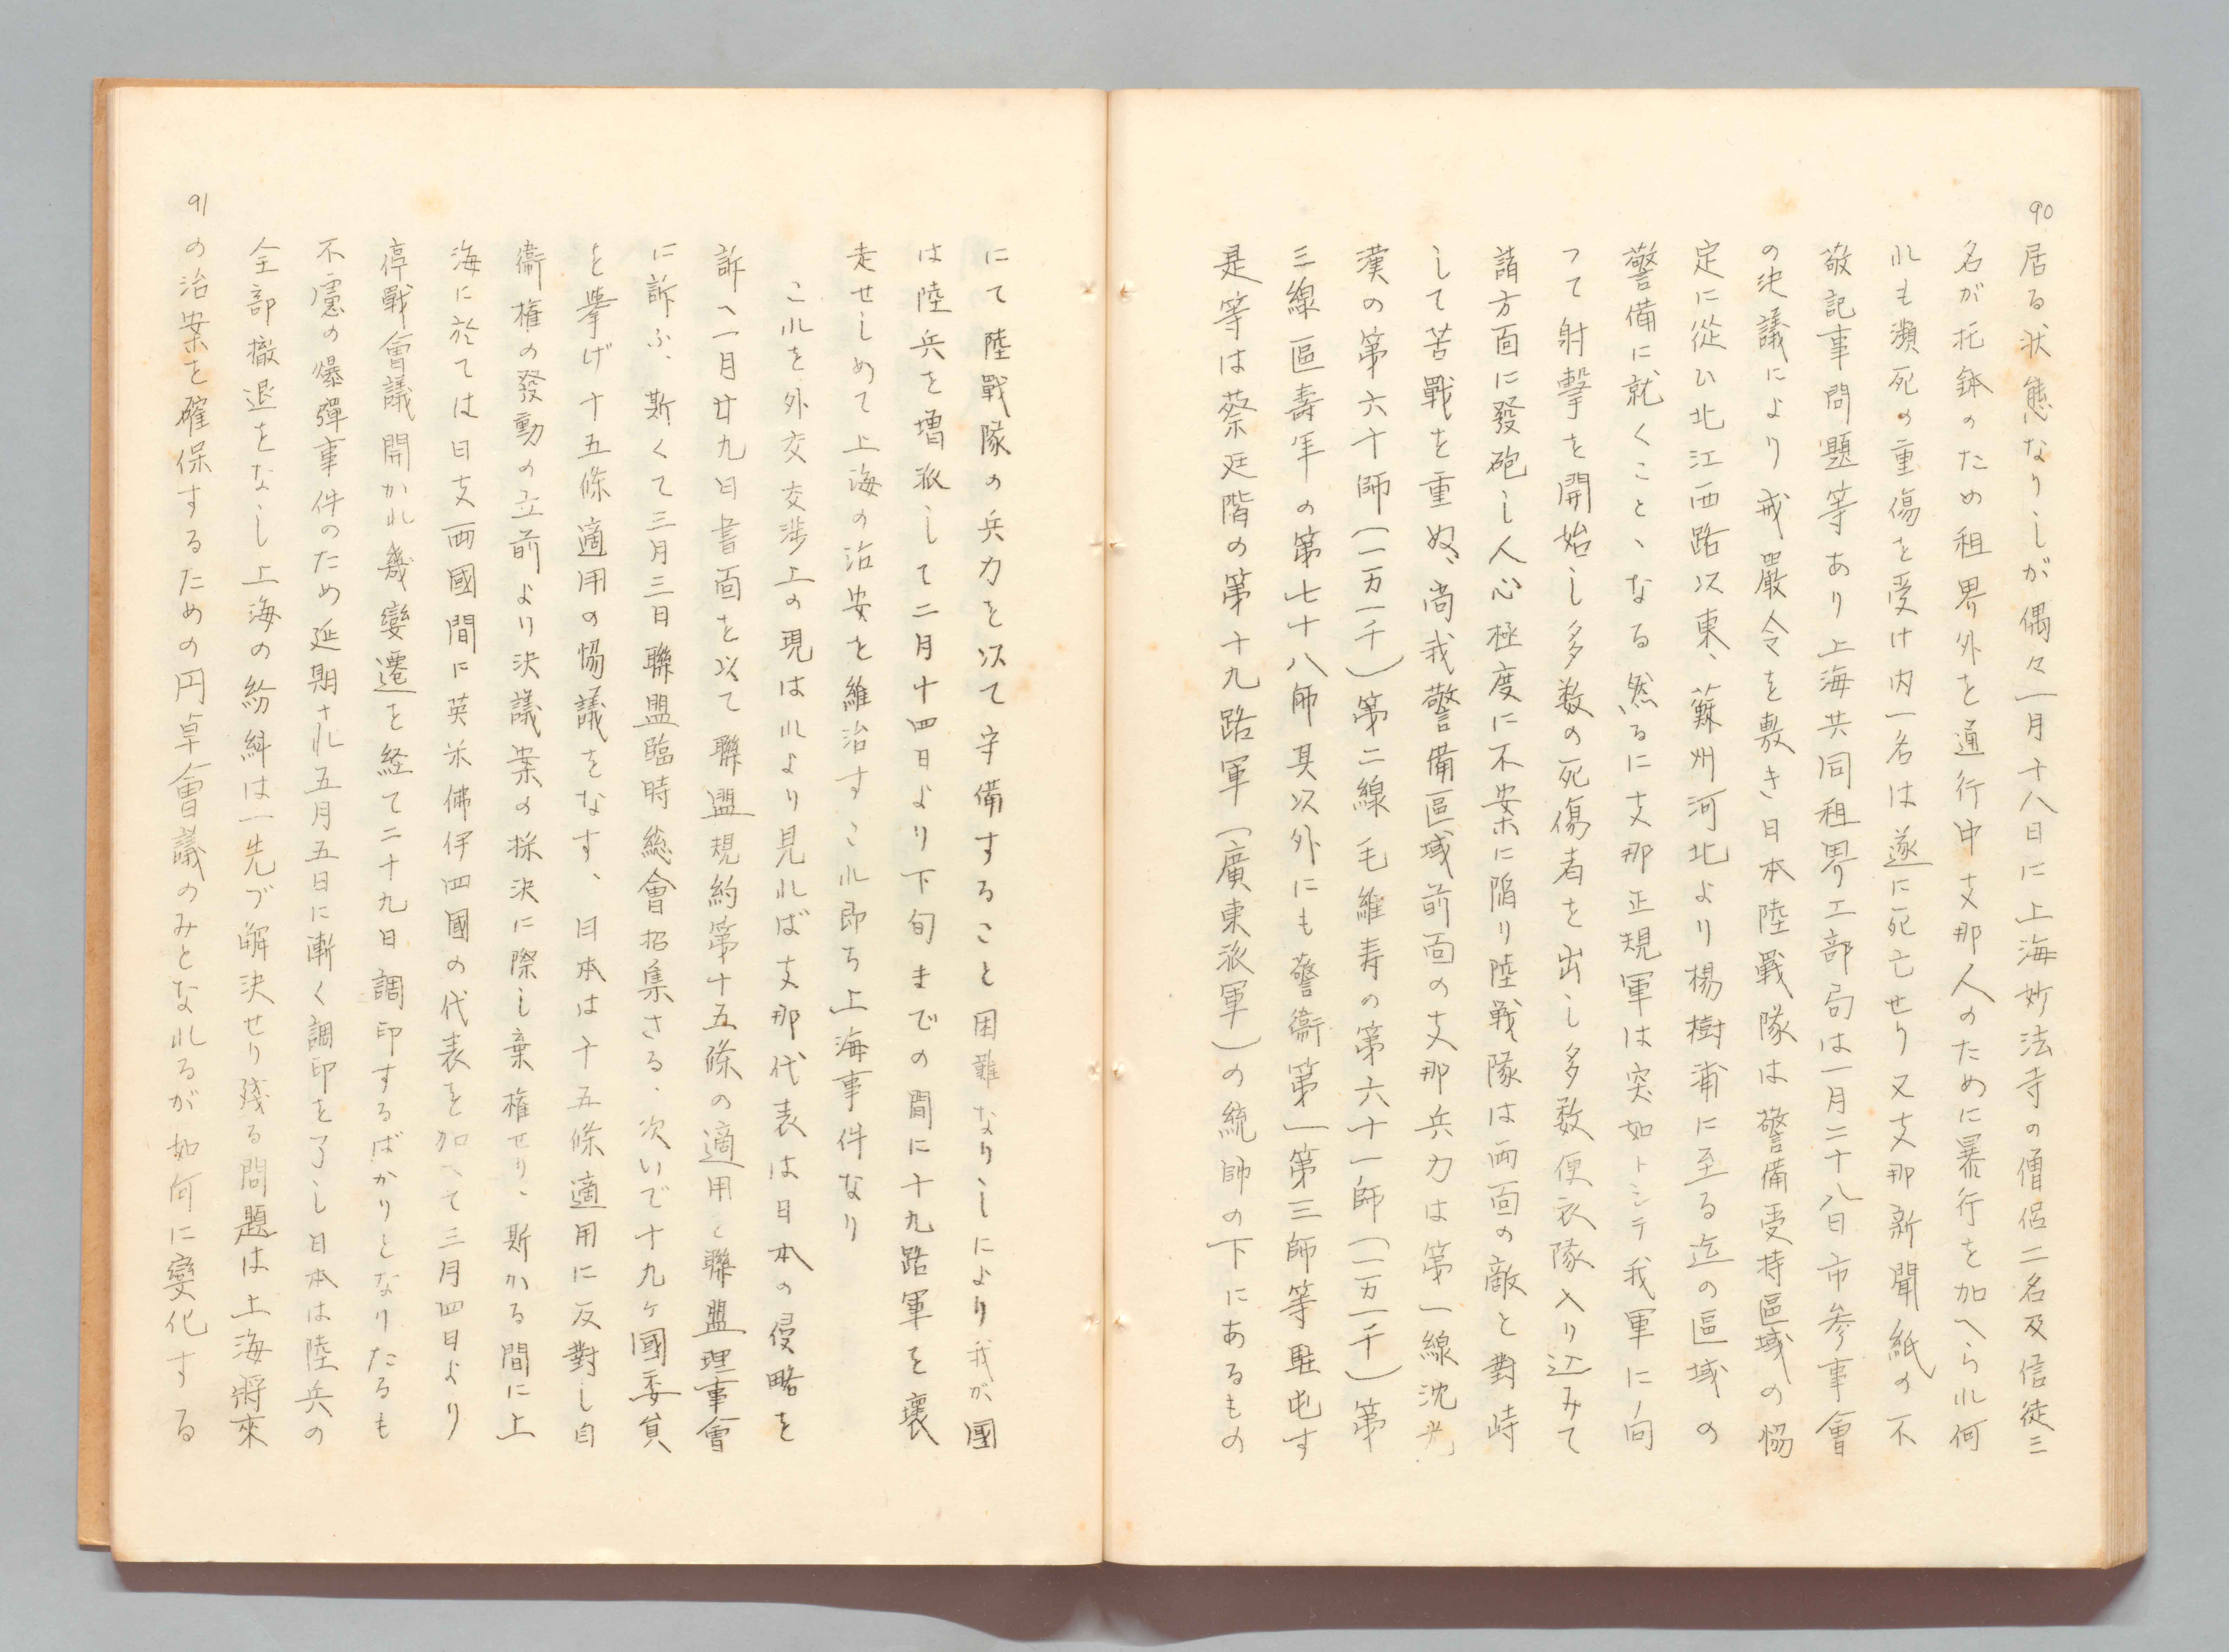 90
居る状態なりしが偶々一月十八日に上海妙法寺の僧侶二名及信徒三
名が托鉢のため租界外を通行中支那人のために暴行を加へられ何
れも瀕死の重傷を受け内一名は遂に死亡せり又支那新聞紙の不
敬記事問題等あり上海共同租界工部局は一月二十八日市参事會
の決議により戒嚴令を敷き日本陸戰隊は警備受持區域の協
定に從ひ北江西路以東、蘇州河北より楊樹浦に至る迄の區域の
警備に就くこと、なる然るに支那正規軍は突如トシテ我軍に向
つて射擊を開始し多数の死傷者を出し多数便衣隊入り込みて
諸方面に發砲し人心極度に不安に陥り陸戦隊は両面の敵と對峙
して苦戰を重ぬ、尚我警備區域前面の支那兵力は第一線沈光
漢の第六十師(一万一千)第二線毛維寿の第六十一師(一万一千)第
三線區壽年の第七十八師其以外にも警衞第一第三師等駐屯す
是等は蔡廷階の第十九路軍(廣東派軍)の統師の下にあるもの
にて陸戰隊の兵力を以て守備すること困難なりしにより我が國
は陸兵を増派して二月十四日より下旬までの間に十九路軍を壊
走せしめて上海の治安を維治すこれ即ち上海事件なり
これを外交交渉上の現はれより見れば支那代表は日本の侵略を
訴へ一月廿九日書面を以て聯盟規約第十五條の適用を聯盟理事會
に訴ふ、斯くて三月三日聯盟臨時総會招集さる、次いで十九ヶ國委員
を擧げ十五條適用の協議をなす、日本は十五條適用に反對し自
衞権の發動の立前より決議案の採決に際し棄権せり、斯かる間に上
海に於ては日支両國間に英米佛伊四國の代表を加へて三月四日より
停戰會議開かれ幾變遷を経て二十九日調印するばかりとなりたるも
不慮の爆彈事件のため延期され五月五日に漸く調印を了し日本は陸兵の
全部撤退をなし上海の紛糾は一先づ解決せり殘る問題は上海將來
91
の治案を確保するための円卓會議のみとなれるが如何に變化する